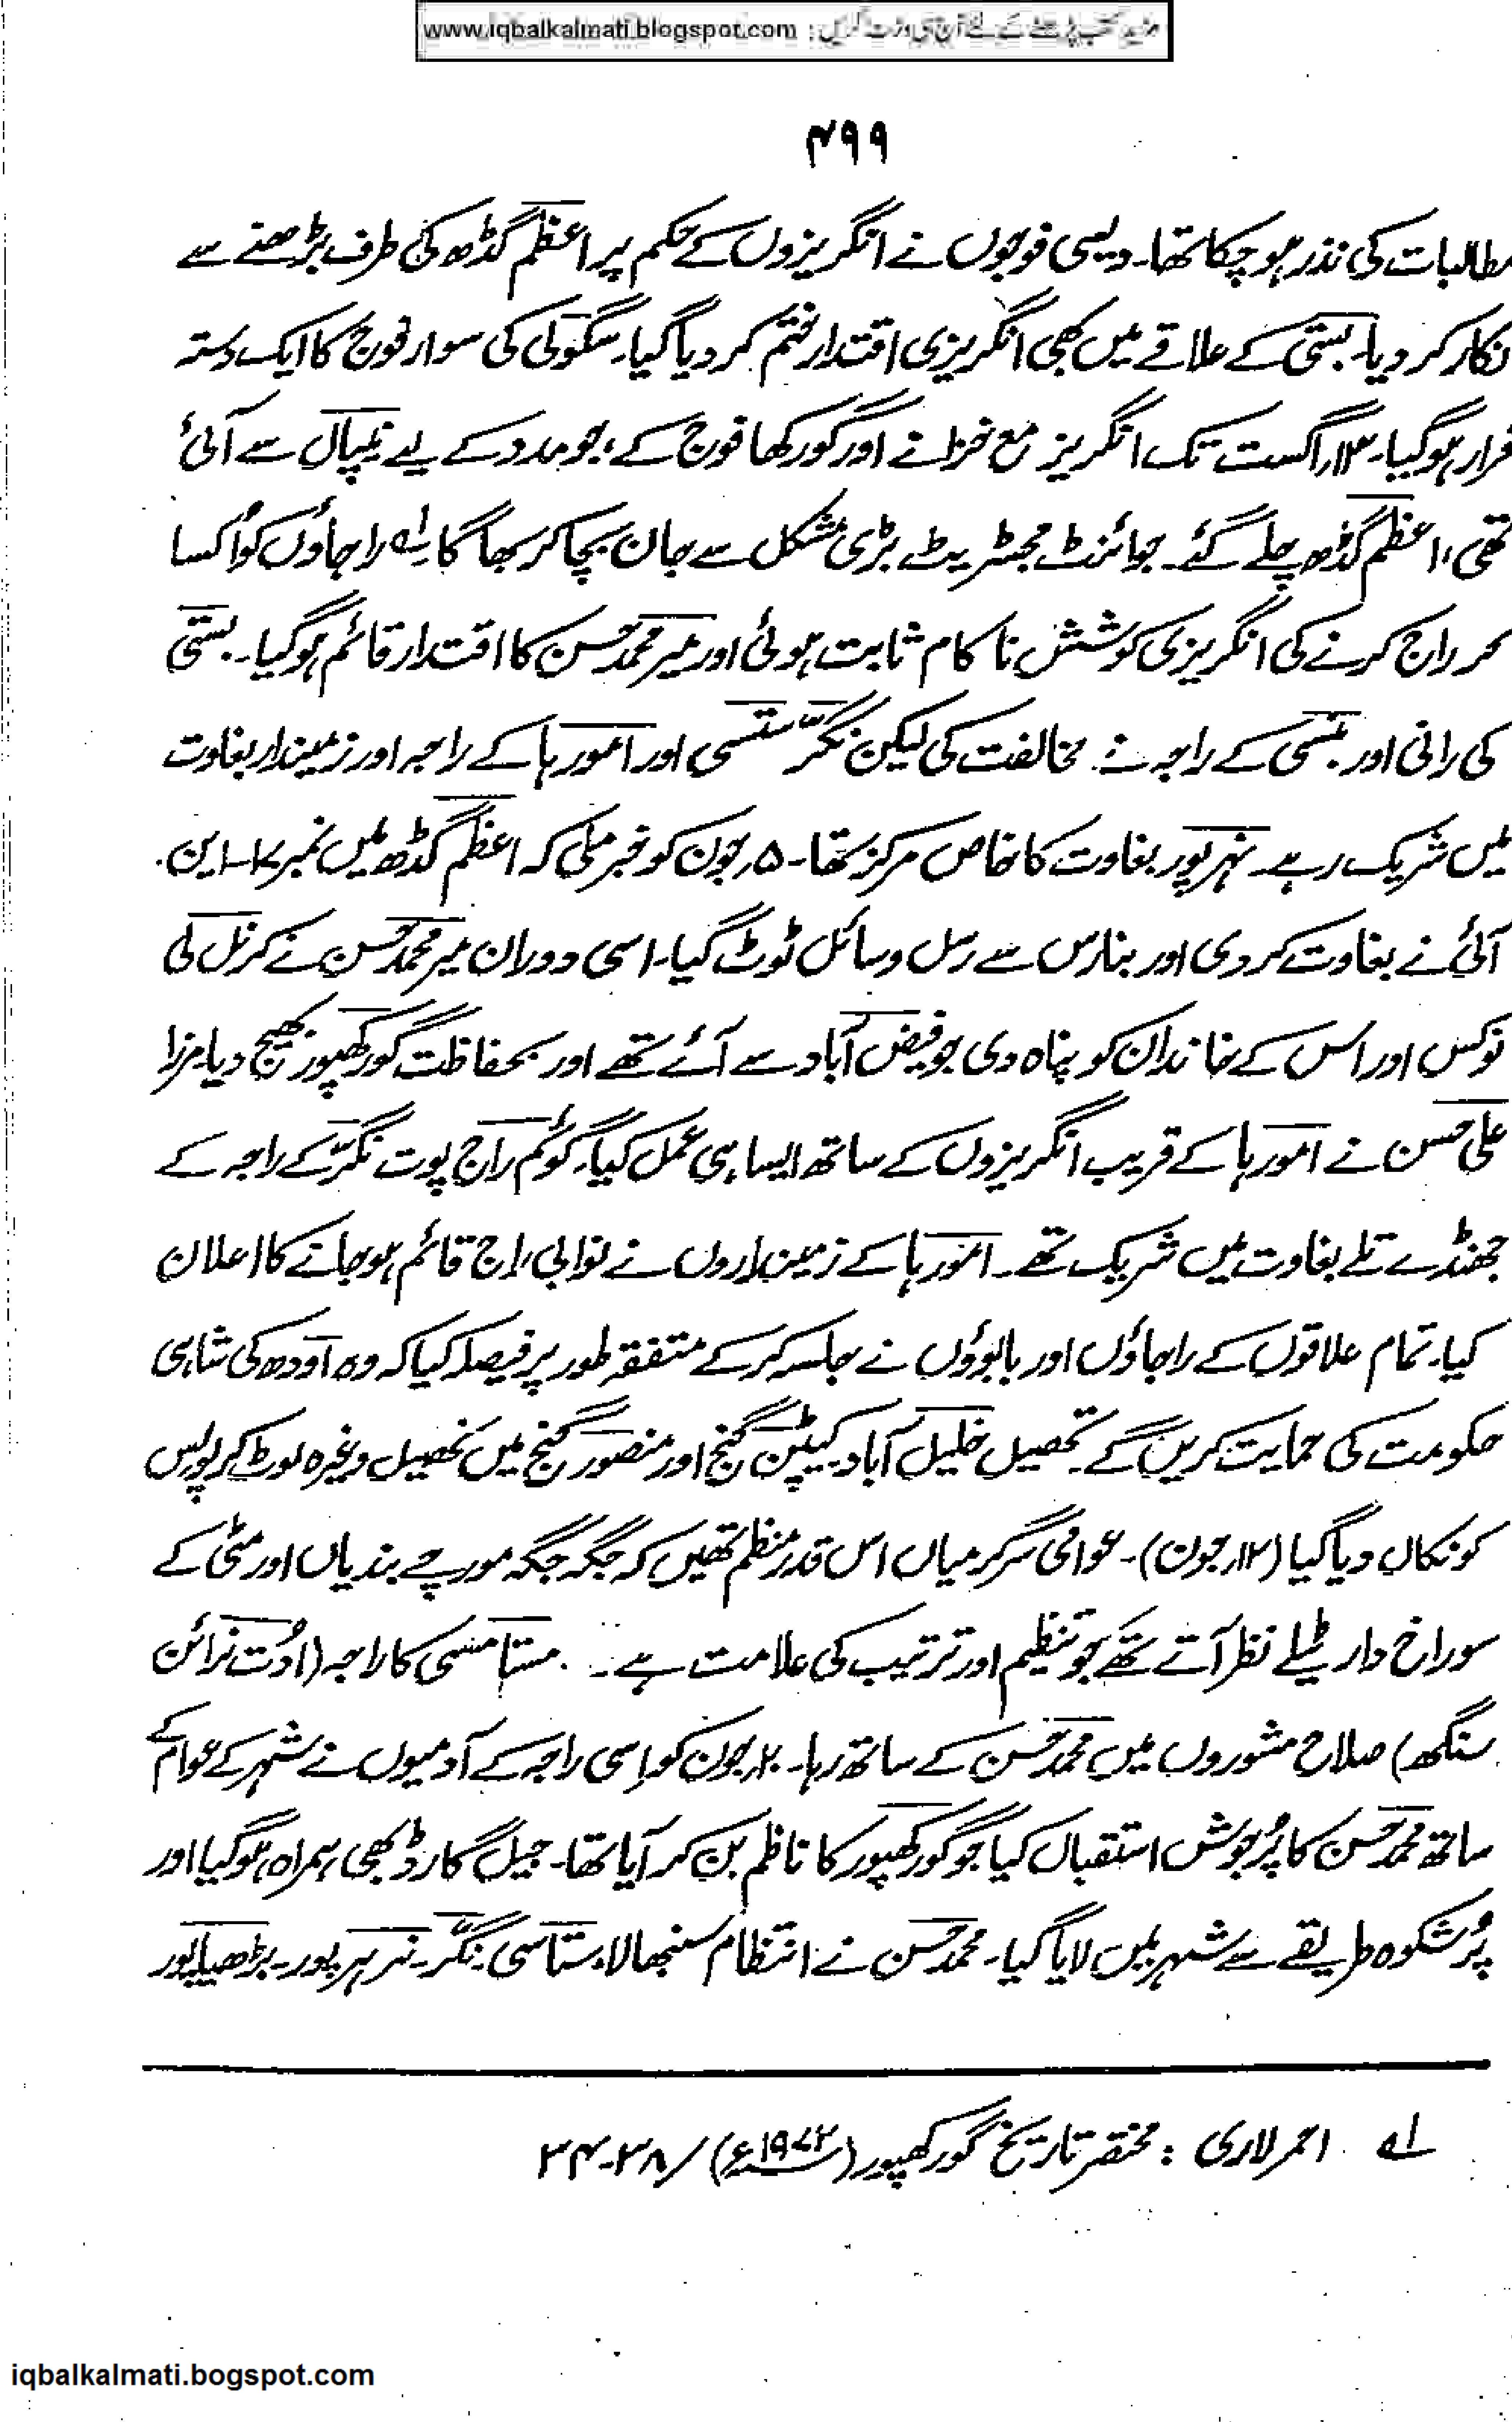 مزید کتب پڑھنے کے لئے آج ہی وزٹ کریں : www.iqbalkalmati.blogspot.com
۴۹۹
مطالبات کی نذر ہو چکا تھا۔ دیسی فوجوں نے انگریزوں کے حکم پر اعظم گڈھ کی طرف بڑھنے سے
نکار کر دیا۔ بستی کے علاقے میں بھی انگریزی اقتدار ختم کر دیا گیا۔ سگولی کی سوار فوج کا ایک دستہ
فرار ہو گیا۔ ۱۳؍اگست تک انگریز مع خزانے اور گورکھا فوج کے، جو مدد کے لیے نیپال سے آئی
تھی، اعظم گڈھ چلے گئے۔ جوائنٹ مجسٹریٹ بڑی مشکل سے جان بچا کر بھاگا۔لہ راجاؤں کو اُکسا
کر راج کرنے کی انگریزی کوشش ناکام ثابت ہوئی اور میر محمد حسن کا اقتدار قائم ہو گیا۔ بستی
کی رانی اور بنسی کے راجہ نے مخالفت کی لیکن نگرّ ستسی اور امورہا کے راجہ اور زمیندار بغاوت
میں شریک رہے۔ نہرپور بغاوت کا خاص مرکز تھا۔ ۵؍جون کو خبر ملی کہ اعظم گڈھ میں نمبر ۱۷۔ این۔
آئی نے بغاوت کر دی اور بنارس سے رسل و سائل ٹوٹ گیا۔ اسی دوران میر محمد حسن نے کرنل لی
نوکس اور اس کے خاندان کو پناہ دی جو فیض آباد سے آئے تھے اور بحفاظت گورکھپور بھیج دیا۔ مرزا
علی حسن نے امورہا کے قریب انگریزوں کے ساتھ ایسا ہی عمل کیا۔ گوئم راج پوت نگرّ کے راجہ کے
جھنڈے تلے بغاوت میں شریک تھے۔ امورہا کے زمینداروں نے نوابی راج قائم ہو جانے کا اعلان
کیا۔ تمام علاقوں کے راجاؤں اور بابوؤں نے جلسہ کر کے متفقہ طور پر فیصلہ کیا کہ وہ اودھ کی شاہی
حکومت کی حمایت کریں گے۔ تحصیل خلیل آباد کیپٹن گنج اور منصور گنج میں تحصیل وغیرہ لوٹ کر پولس
کو نکال دیا گیا (۱۲؍جون)۔ عوامی سرگرمیاں اس قدر منظم تھیں کہ جگہ جگہ مورچے بندیاں اور مٹی کے
سوراخ دار ٹیلے نظر آتے تھے جو تنظیم اور ترتیب کی علامت ہے۔ کا راجہ (اُدت نرائن
سنگھ) صلاح مشوروں میں محمد حسن کے ساتھ رہا۔ ۲۰؍جون کو اِسی راجہ کے آدمیوں نے شہر کے عوام کے
ساتھ محمد حسن کا پُرجوش استقبال کیا جو گورکھپور کا ناظم بن کر آیا تھا۔ جیل گارڈ بھی ہمراہ ہو گیا اور
پُرشکوہ طریقے سے شہر میں لایا گیا۔ محمد حسن نے انتظام سنبھالا۔ ستاسی۔ نگرّ۔ نرہر پور۔ بڑھیاپور
لہ احمر لاری : مختصر تاریخ گورکھپور (۱۹۷۲ء) / ۳۸۔۳۴
iqbalkalmati.bogspot.com